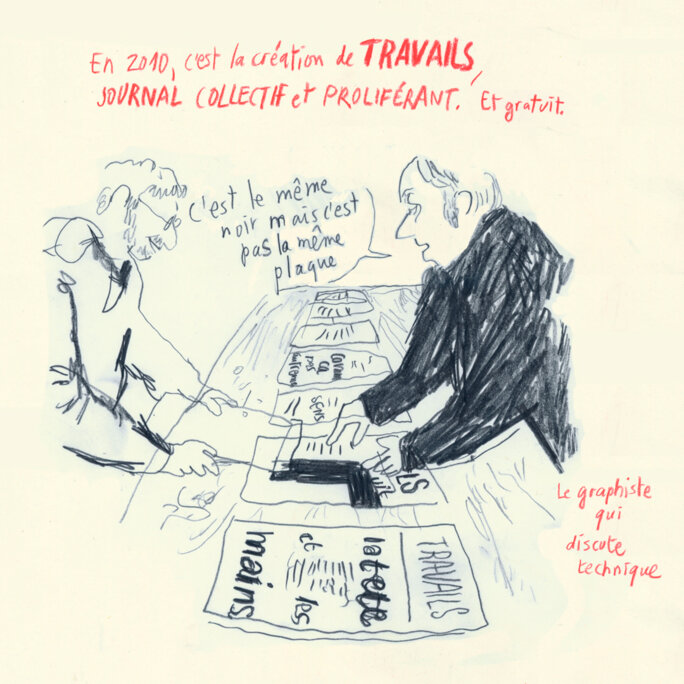 En 2010, c'est la création de TRAVAILS,
JOURNAL COLLECTIF et PROLIFÉRANT. Et gratuit.
C'est le même
noir mais c'est
pas la même
plaque
sens
TRAVAILS
la tete
et les
mains
Le graphiste
qui
discute
technique